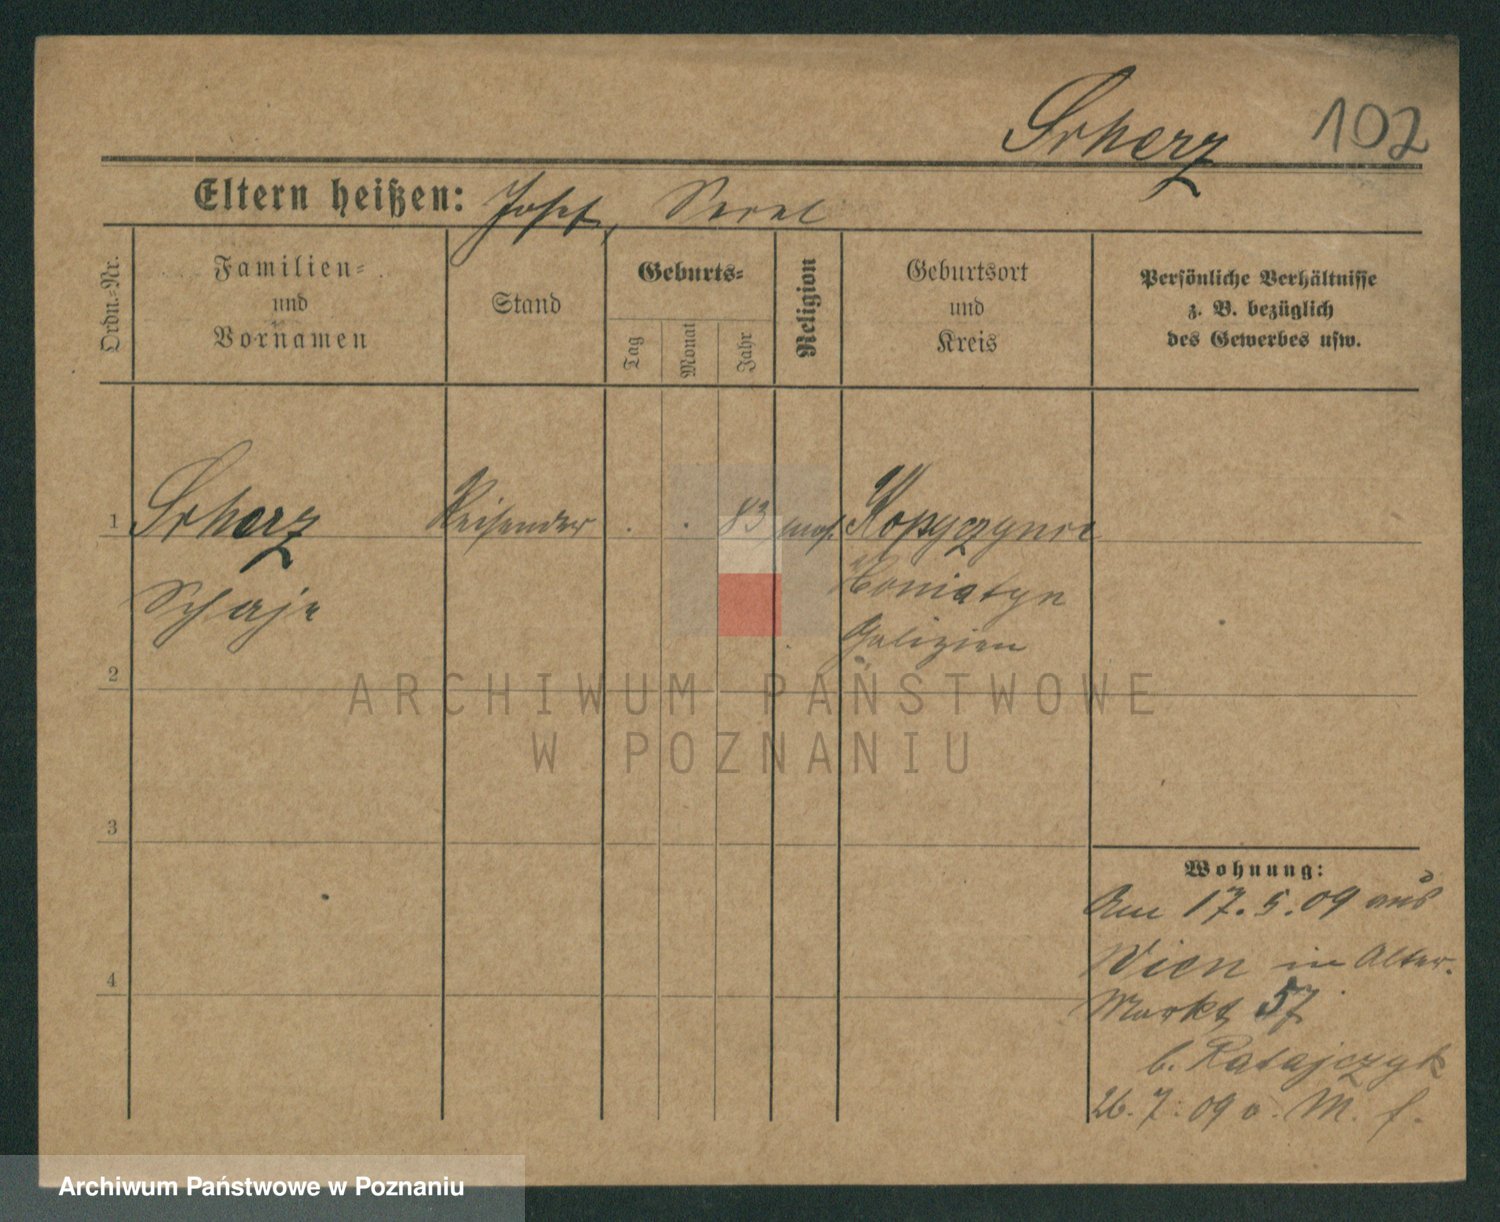 Scherz 102
Eltern heißen: Josef, Serel
Ordn.-Nr.
Familien-
und
Vornamen
Stand
Geburts-
Tag
Monat
Jahr
Religion
Geburtsort
und
Kreis
Persönliche Verhältnisse
z. B. bezüglich
des Gewerbes usw.
1 Scherz Reisender . . 83 mos. Kopyczynce
Schaje
Galizien
2
ARCHIWUM PAŃSTWOWE
W POZNANIU
3
Wohnung:
Am 17.5.09 aus
Wien in Alter-
4
Markt 57
b. Ratajczyk
26.7.09 o. M. f.
Archiwum Państwowe w Poznaniu